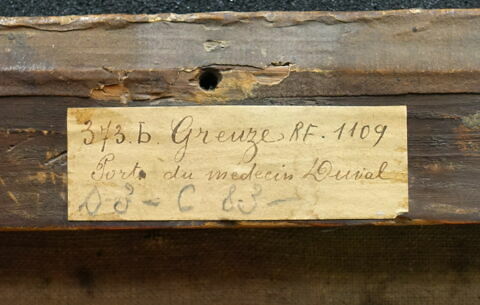 373.b. Greuze RF. 1109
Port. du medecin Duval
D3 - C 83 -